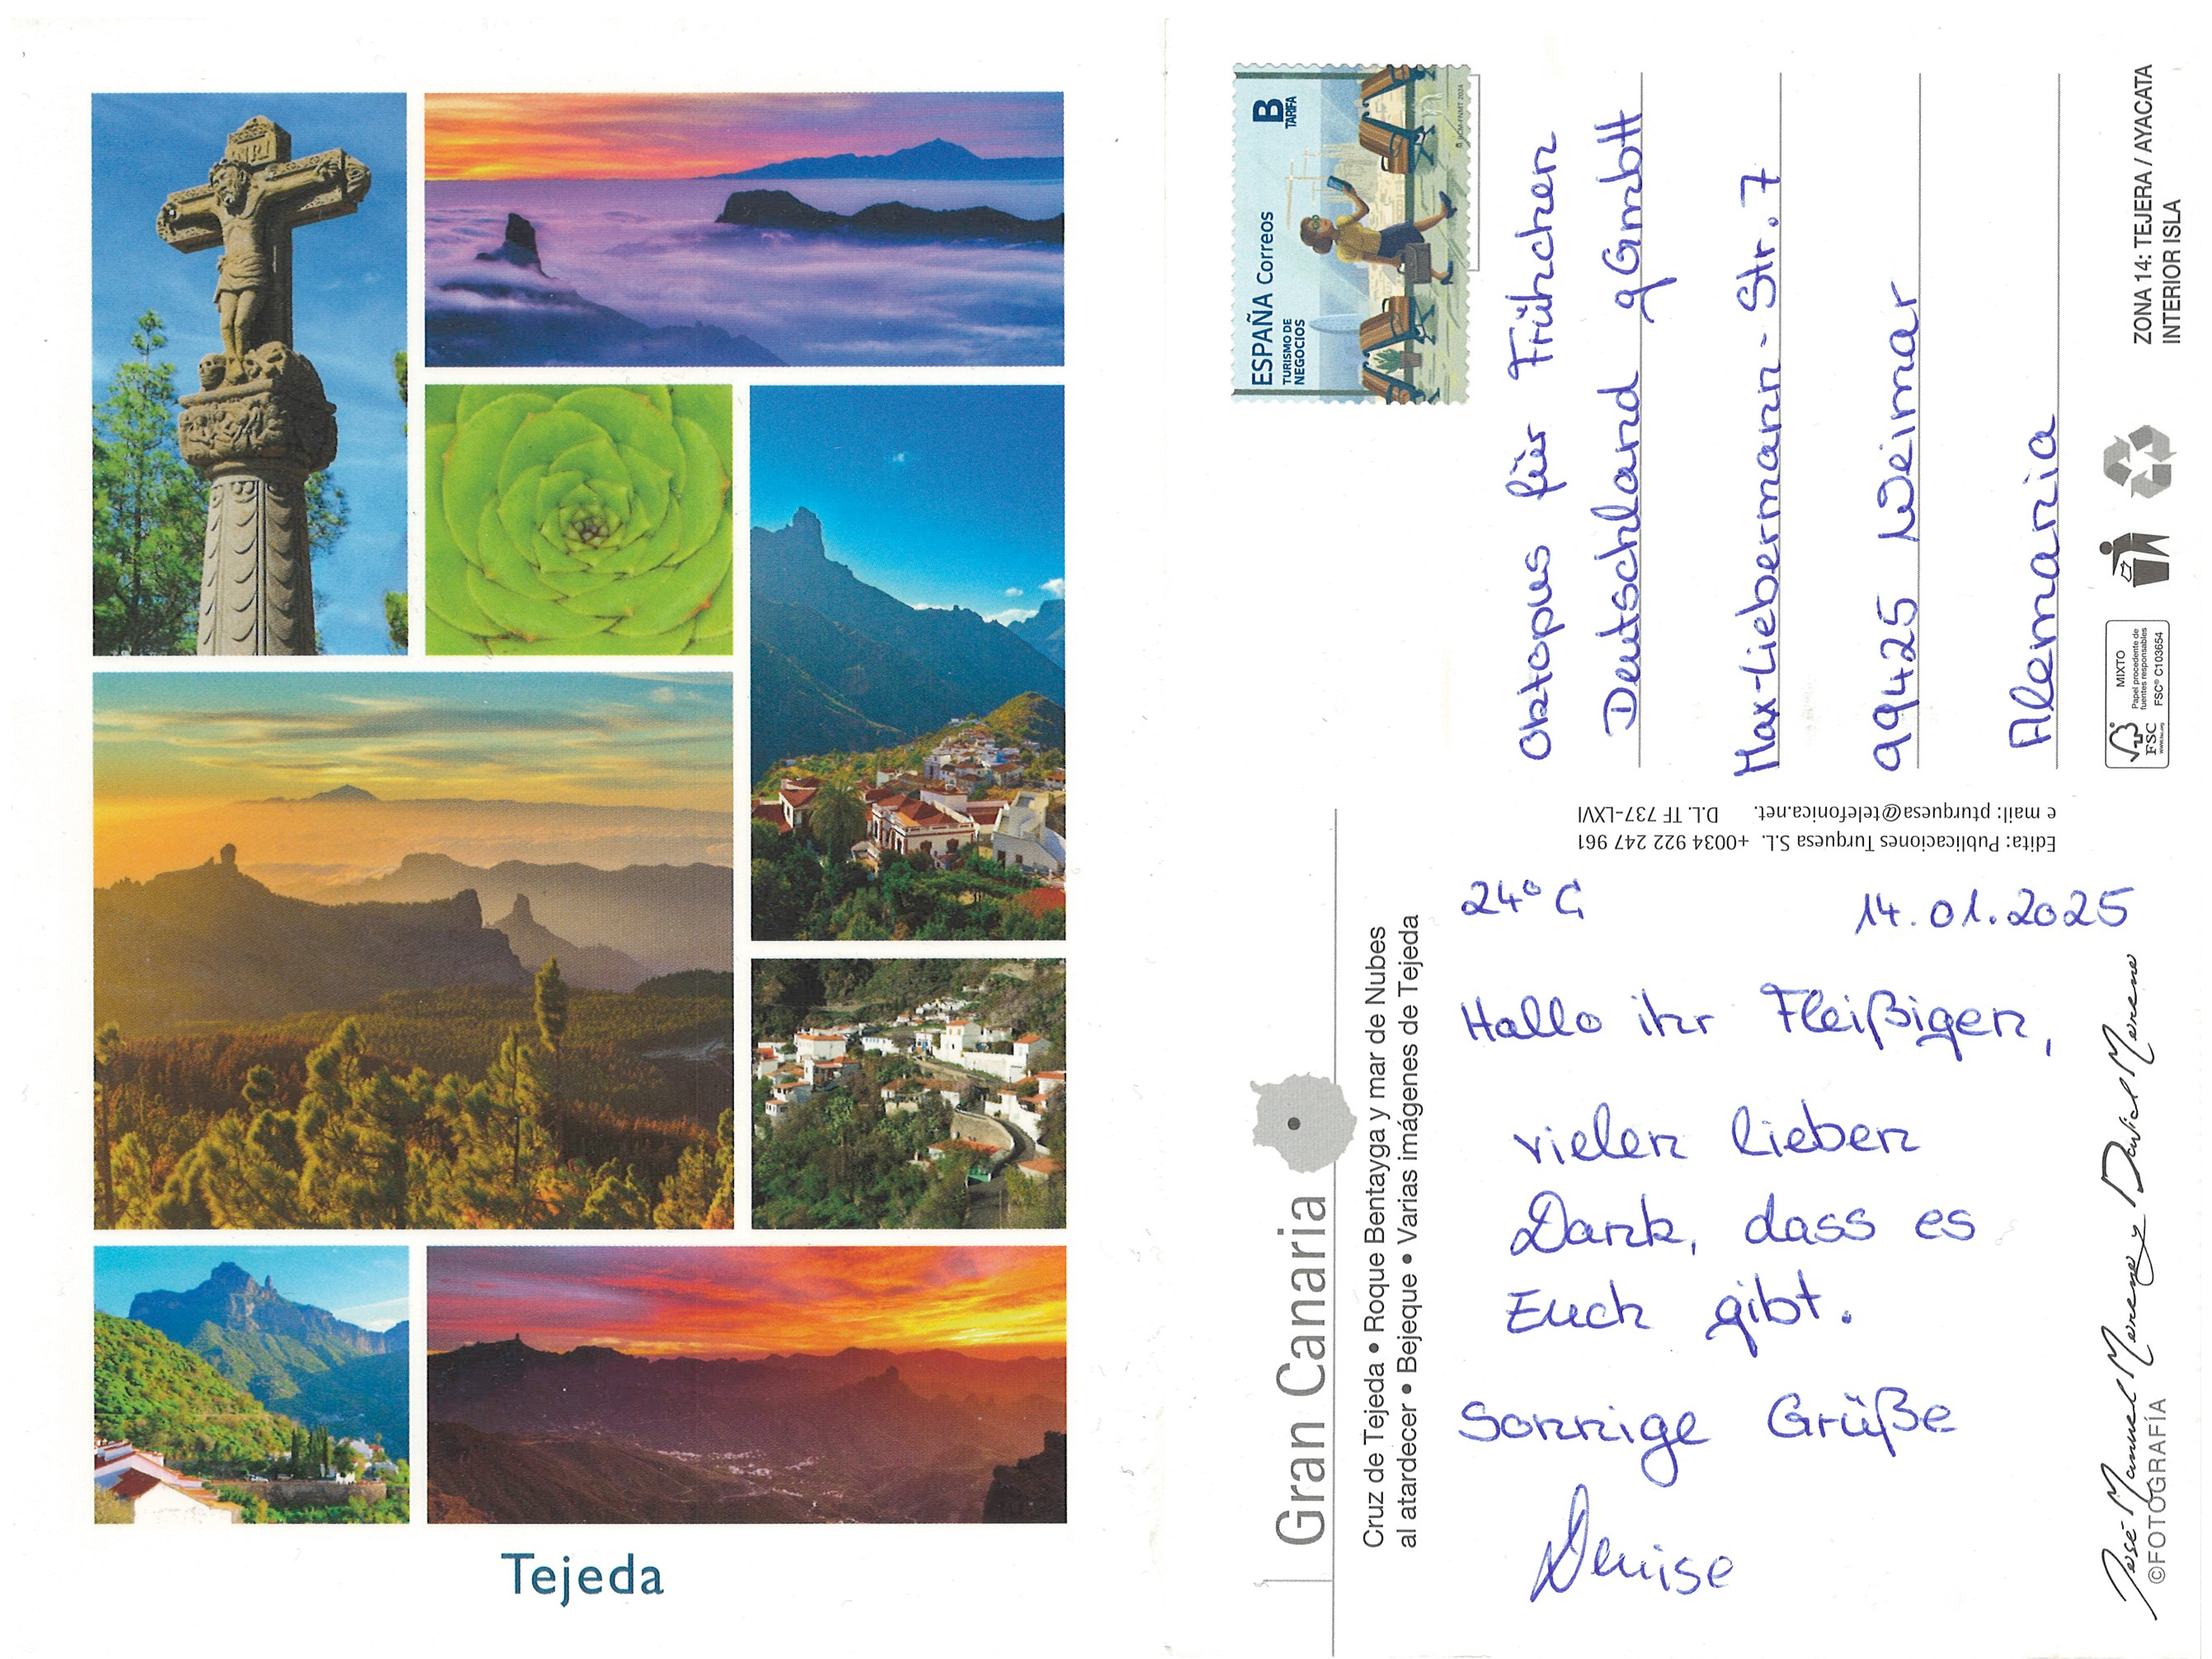 INRI
Tejeda
ESPAÑA Correos
TURISMO DE
NEGOCIOS
B
TARIFA
Oktopus für Frühchen
Deutschland gGmbH
Max-Liebermann-Str. 7
99425 Weimar
Alemania
ZONA 14: TEJERA / AYACATA
INTERIOR ISLA
MIXTO
Papel procedente de
fuentes responsables
FSC® C103654
FSC
Edita: Publicaciones Turquesa S.L. +0034 922 247 961
e mail: pturquesa@telefonica.net. D.L. TF 737-LXVI
Gran Canaria
Cruz de Tejeda • Roque Bentayga y mar de Nubes
al atardecer • Bejeque • Varias imágenes de Tejeda
24° C 14.01.2025
Hallo ihr Fleißigen,
vielen lieben
Dank, dass es
Euch gibt.
Sonnige Grüße
Denise
José Manuel Moreno y David Moreno
©FOTOGRAFÍA